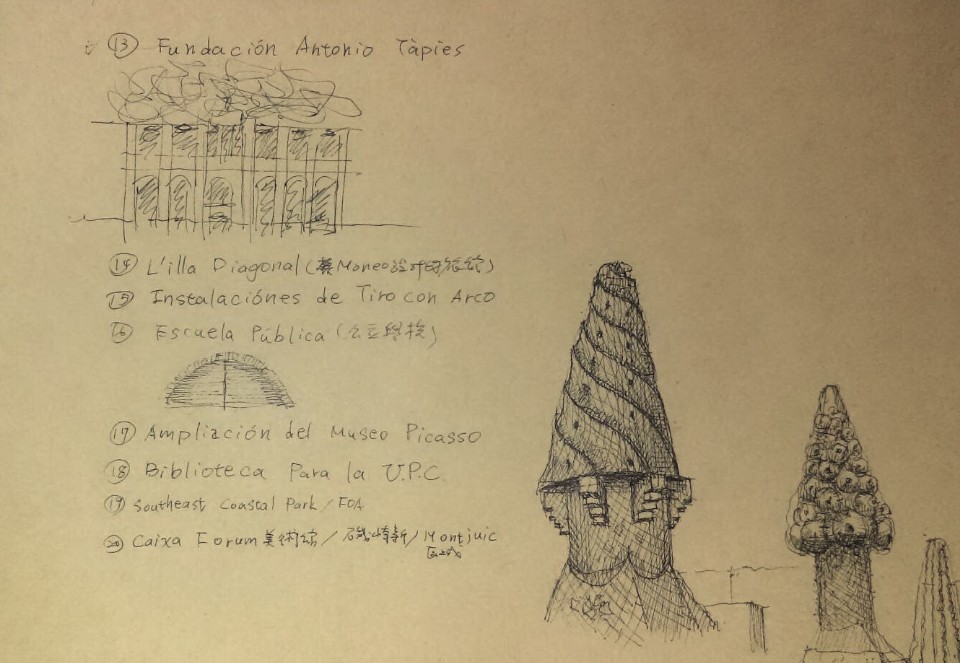 ⑬ Fundación Antonio Tàpies
⑭ L'illa Diagonal (蔡Moneo設計的旅館)
⑮ Instalaciónes de Tiro con Arco
⑯ Escuela Pública (公立學校)
⑰ Ampliación del Museo Picasso
⑱ Biblioteca Para la U.P.C.
⑲ Southeast Coastal Park / FOA
⑳ Caixa Forum 美術館 / 磯崎新 / Montjuic
區域